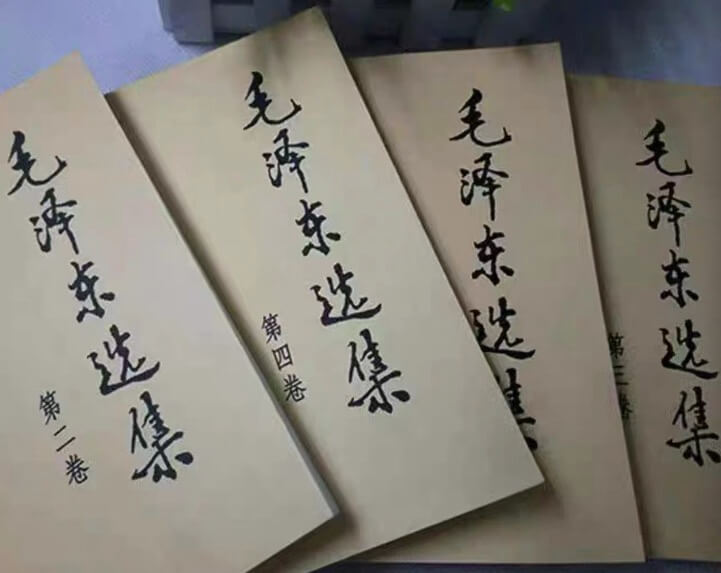 毛泽东选集
第二卷
毛泽东选集
第四卷
毛泽东选集
毛泽东选集
第三卷